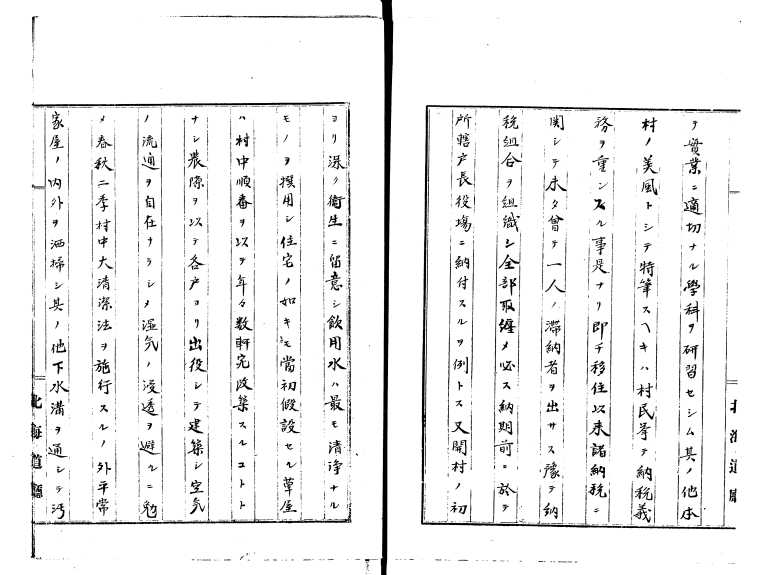 テ實業ニ適切ナル學科ヲ研習セシム其ノ他本
村ノ美風トシテ特筆スヘキハ村民挙テ納税義
務ヲ重ンスル事是ナリ即チ移住以来諸納税ニ
関シテ未タ曾テ一人ノ滞納者ヲ出サス豫テ納
税組合ヲ組織シ全部取纏メ必ス納期前ニ於テ
所轄戸長役場ニ納付スルヲ例トス又開村ノ初
北海道廳
ヨリ深ク衛生ニ留意シ飲用水ハ最モ清浄ナル
モノヲ撰用シ住宅ノ如キモ當初假設セル草屋
ハ村中順番ヲ以テ年々数軒宛改築スルコトト
ナシ農隙ヲ以テ各戸ヨリ出役シテ建築シ空気
ノ流通ヲ自在ナラシメ湿気ノ浸透ヲ避ルニ勉
メ春秋二季村中大清潔法ヲ施行スルノ外平常
家屋ノ内外ヲ洒掃シ其ノ他下水溝ヲ通シテ汚
北海道廳